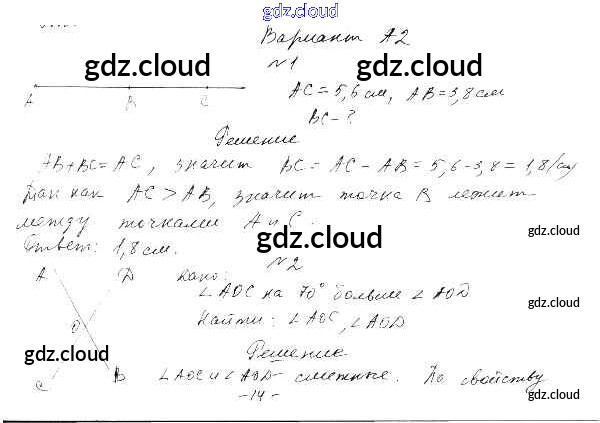 gdz.cloud
Вариант А2
№1
gdz.cloud gdz.cloud
A B C
AC = 5,6 см, AB = 3,8 см
BC - ?
Решение
AB + BC = AC, значит BC = AC - AB = 5,6 - 3,8 = 1,8 (см)
Так как AC > AB, значит точка B лежит
между точками A и C.
Ответ: 1,8 см.
gdz.cloud
gdz.cloud
№2
A D Дано:
∠AOC на 70° больше ∠AOD
gdz.cloud
O Найти: ∠AOC, ∠AOD
gdz.cloud
Решение
C B ∠AOC и ∠AOD - смежные. По свойству
gdz.cloud
- 14 -